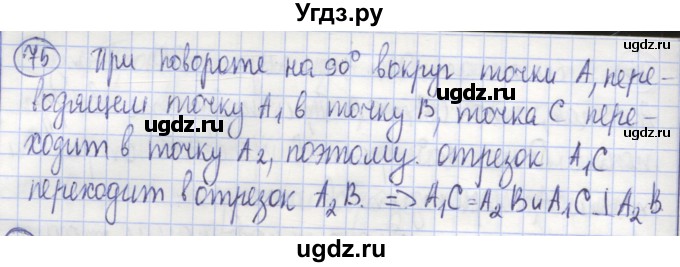 Угдз.ру
75 При повороте на 90° вокруг точки A, пере-
ugdz.ru ugdz.ru
водящем точку A₁ в точку B, точка C пере-
ходит в точку A₂, поэтому. отрезок A₁C
переходит в отрезок A₂B. => A₁C = A₂B и A₁C ⊥ A₂B
ugdz.ru ugdz.ru